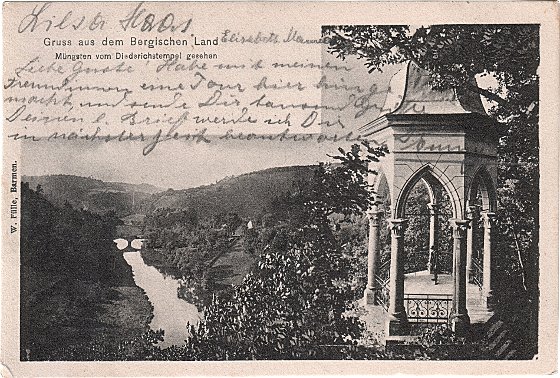 Gruss aus dem Bergischen Land
Müngsten vom Diederichstempel gesehen
Liebe Guste! Habe mit meinen
Freundinnen eine Tour hier hin ge
macht, und sende Dir tausend Grüße
Deinen l. Brief werde ich Dir
in nächster beantworten
W. Fülle, Barmen.